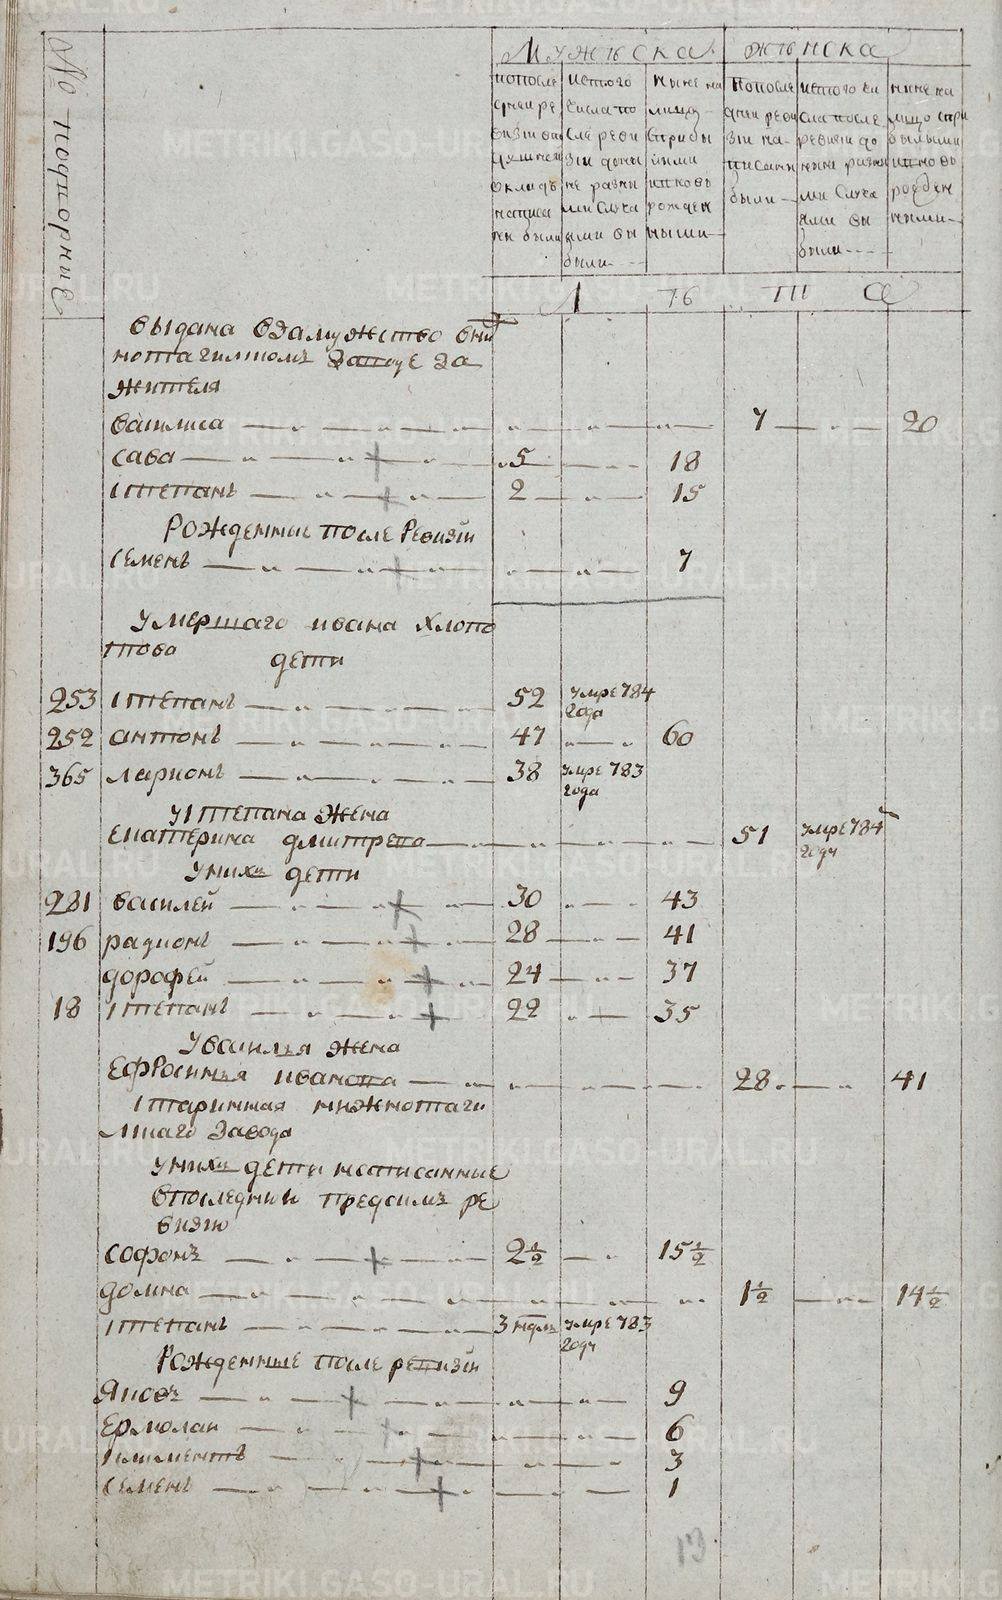 № подворние
Мужеска
женска
попосле
дней ре
визіи
вкладъ
написа
ны были
ис того
числа по
сле реви
зіи до ны
не разны
ми случа
ями вы
были
ныне на
лицо
с прибы
лыми
и вновь
рожден
ными
попосле
дней реви
зіи на
писаны
были
ис того чи
сла после
ревизіи до
ныне разны
ми случа
ями вы
были
ныне на
лицо с при
былыми
и вновь
рожден
ными
Л ѣ т а
выдана взамужество вни
жнотагилскомъ заводе за
жителя
василиса 7 20
сава 5 18
степанъ 2 15
Рожденные после Ревизіи
семенъ 7
умершаго ивана хлопо
това дети
253 степанъ 52 умре 784 года
252 антонъ 47 60
365 ларионъ 38 умре 783 года
у степана жена
екатерина дмитрева 51 умре 784 году
уних дети
281 василей 30 43
196 радионъ 28 41
дорофей 24 37
18 степанъ 22 35
у василья жена
Ефросинья иванова 28 41
старинная нижнотаги
лскаго завода
уних дети написанные
впоследнии предсимъ ре
визию
софонъ 2½ 15½
домна 1½ 14½
степанъ 3 недль умре 783 году
Рожденные после ревизіи
Яковъ 9
Ермолаи 6
климентъ 3
семенъ 1
13
METRIKI.GASO-URAL.RU